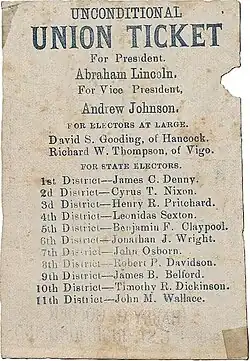 UNCONDITIONAL
UNION TICKET
For President.
Abraham Lincoln.
For Vice President,
Andrew Johnson.
FOR ELECTORS AT LARGE.
David S. Gooding, of Hancock.
Richard W. Thompson, of Vigo.
FOR STATE ELECTORS.
1st District—James C. Denny.
2d District—Cyrus T. Nixon.
3d District—Henry R. Pritchard.
4th District—Leonidas Sexton.
5th District—Benjamin F. Claypool.
6th District—Jonathan J. Wright.
7th District—John Osborn.
8th District—Robert P. Davidson.
9th District—James B. Belford.
10th District—Timothy R. Dickinson.
11th District—John M. Wallace.